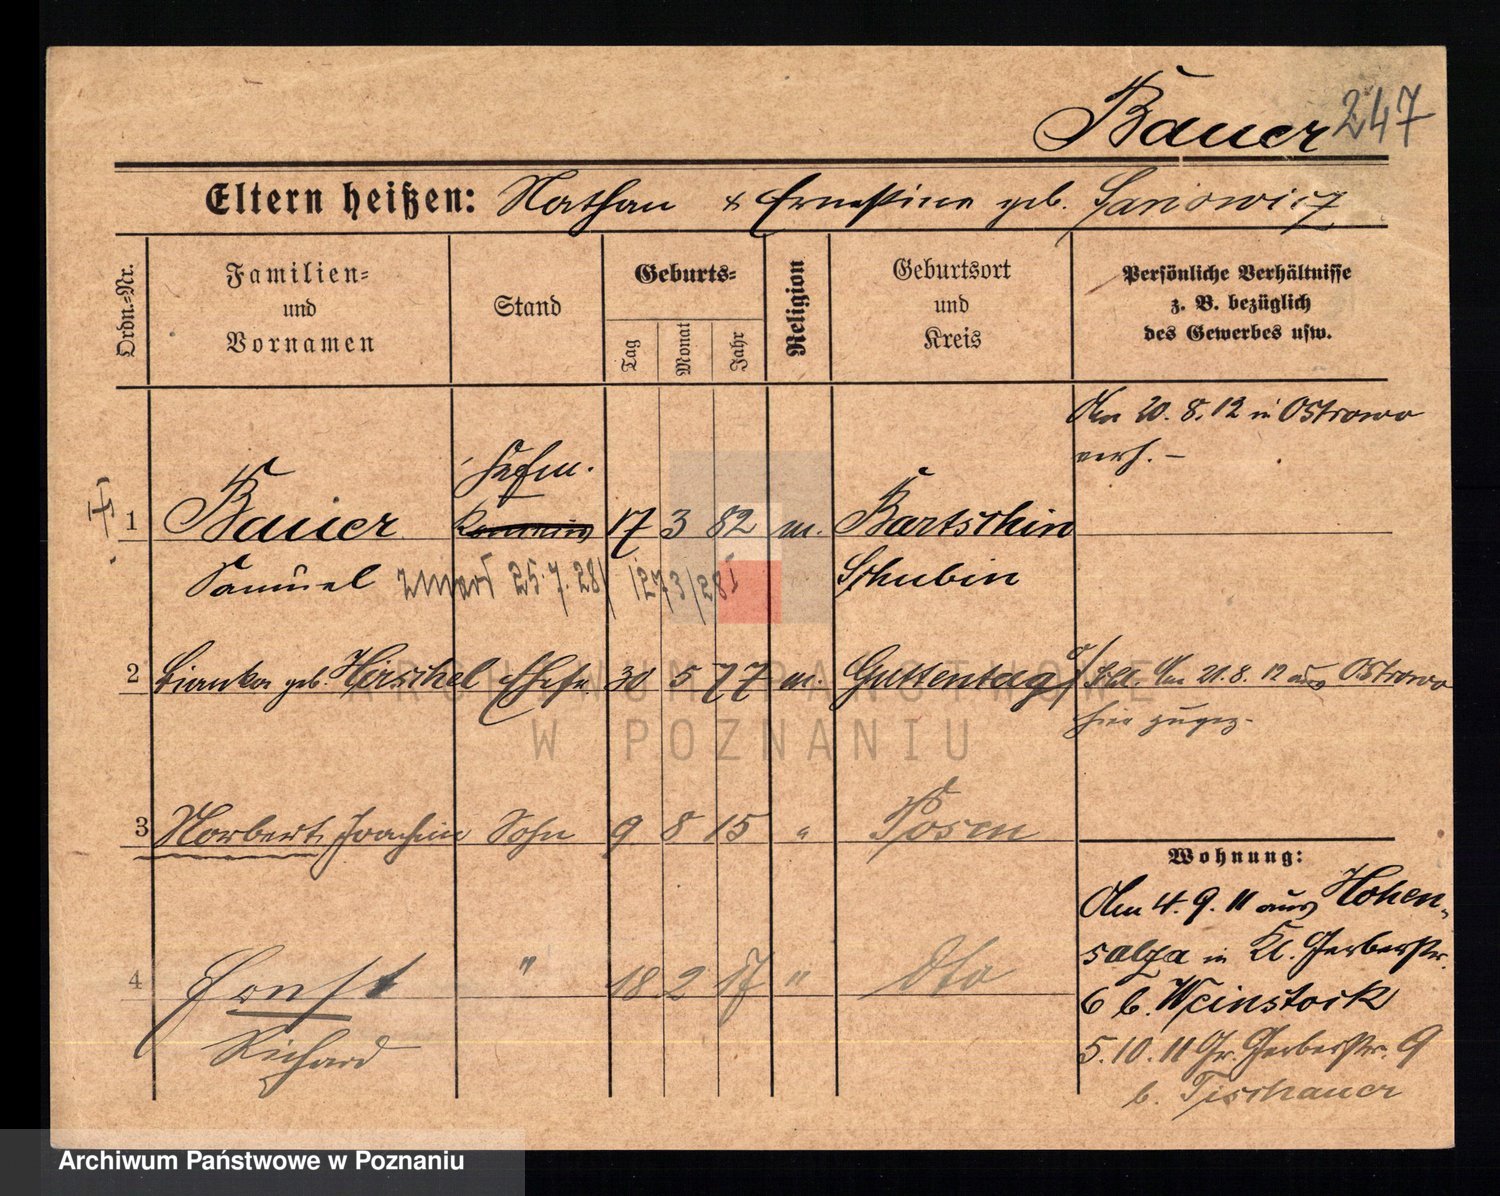 Bauer 247
Eltern heißen: Nathan & Ernestine geb. Janowicz
Ordn.=Nr.
Familien=
und
Vornamen
Stand
Geburts=
Tag
Monat
Jahr
Religion
Geburtsort
und
Kreis
Persönliche Verhältnisse
z. B. bezüglich
des Gewerbes usw.
Am 20. 8. 12 in Ostrowo
verh. —
1 Bauer 17 3 82 m. Bartschin
Samuel zmarł 25.7.28 Schubin
2 Bianka geb. Hirschel Ehefr. 30 5 77 m. Guttentag
Am 21. 8. 12 aus Ostrowo
hier zugez.
3 Norbert Joachim Sohn 9 8 15 " Posen
4 Ernst " 18 2 17 " dto
Richard
Wohnung:
Am 4. 9. 11 aus Hohen-
salza in Kl. Gerberstr.
6 b. Weinstock
5. 10. 11 Gr. Gerberstr. 9
b. Tischauer
ARCHIWUM PAŃSTWOWE
W POZNANIU
Archiwum Państwowe w Poznaniu